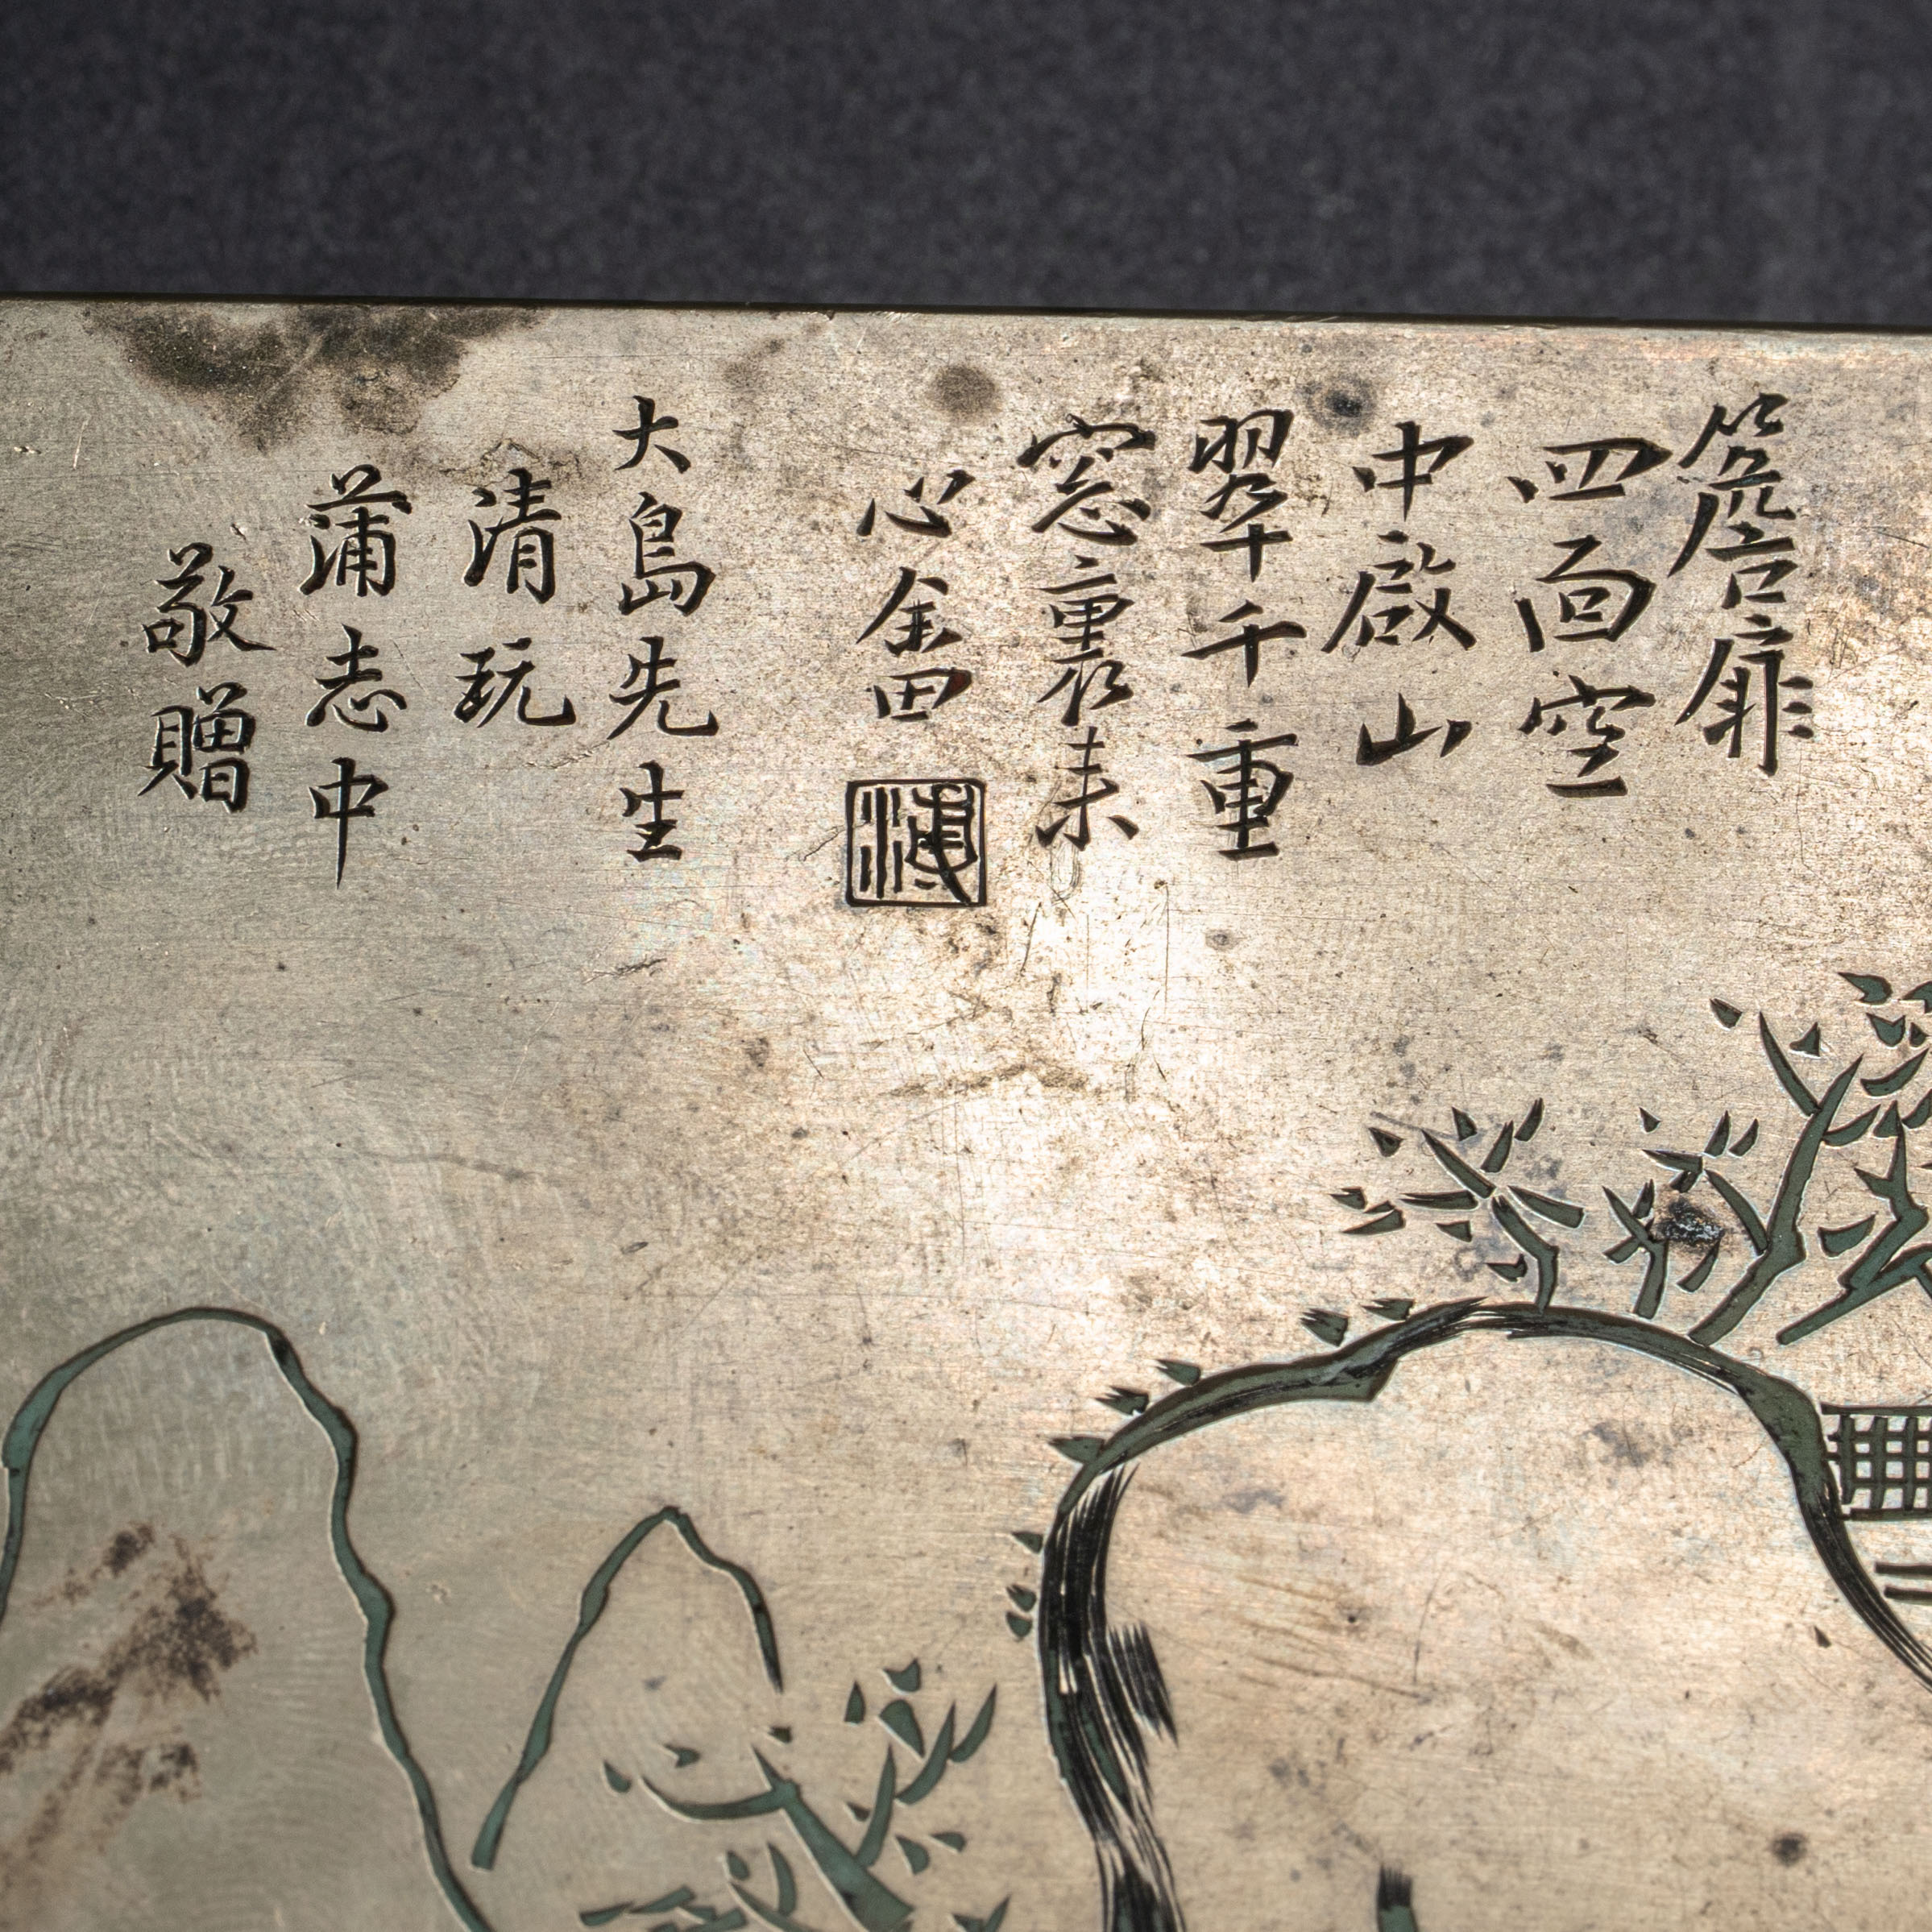 簷扉
四面空
中啟山
翠千重
窓裏来
心畬
大島先生
清玩
蒲志中
敬贈